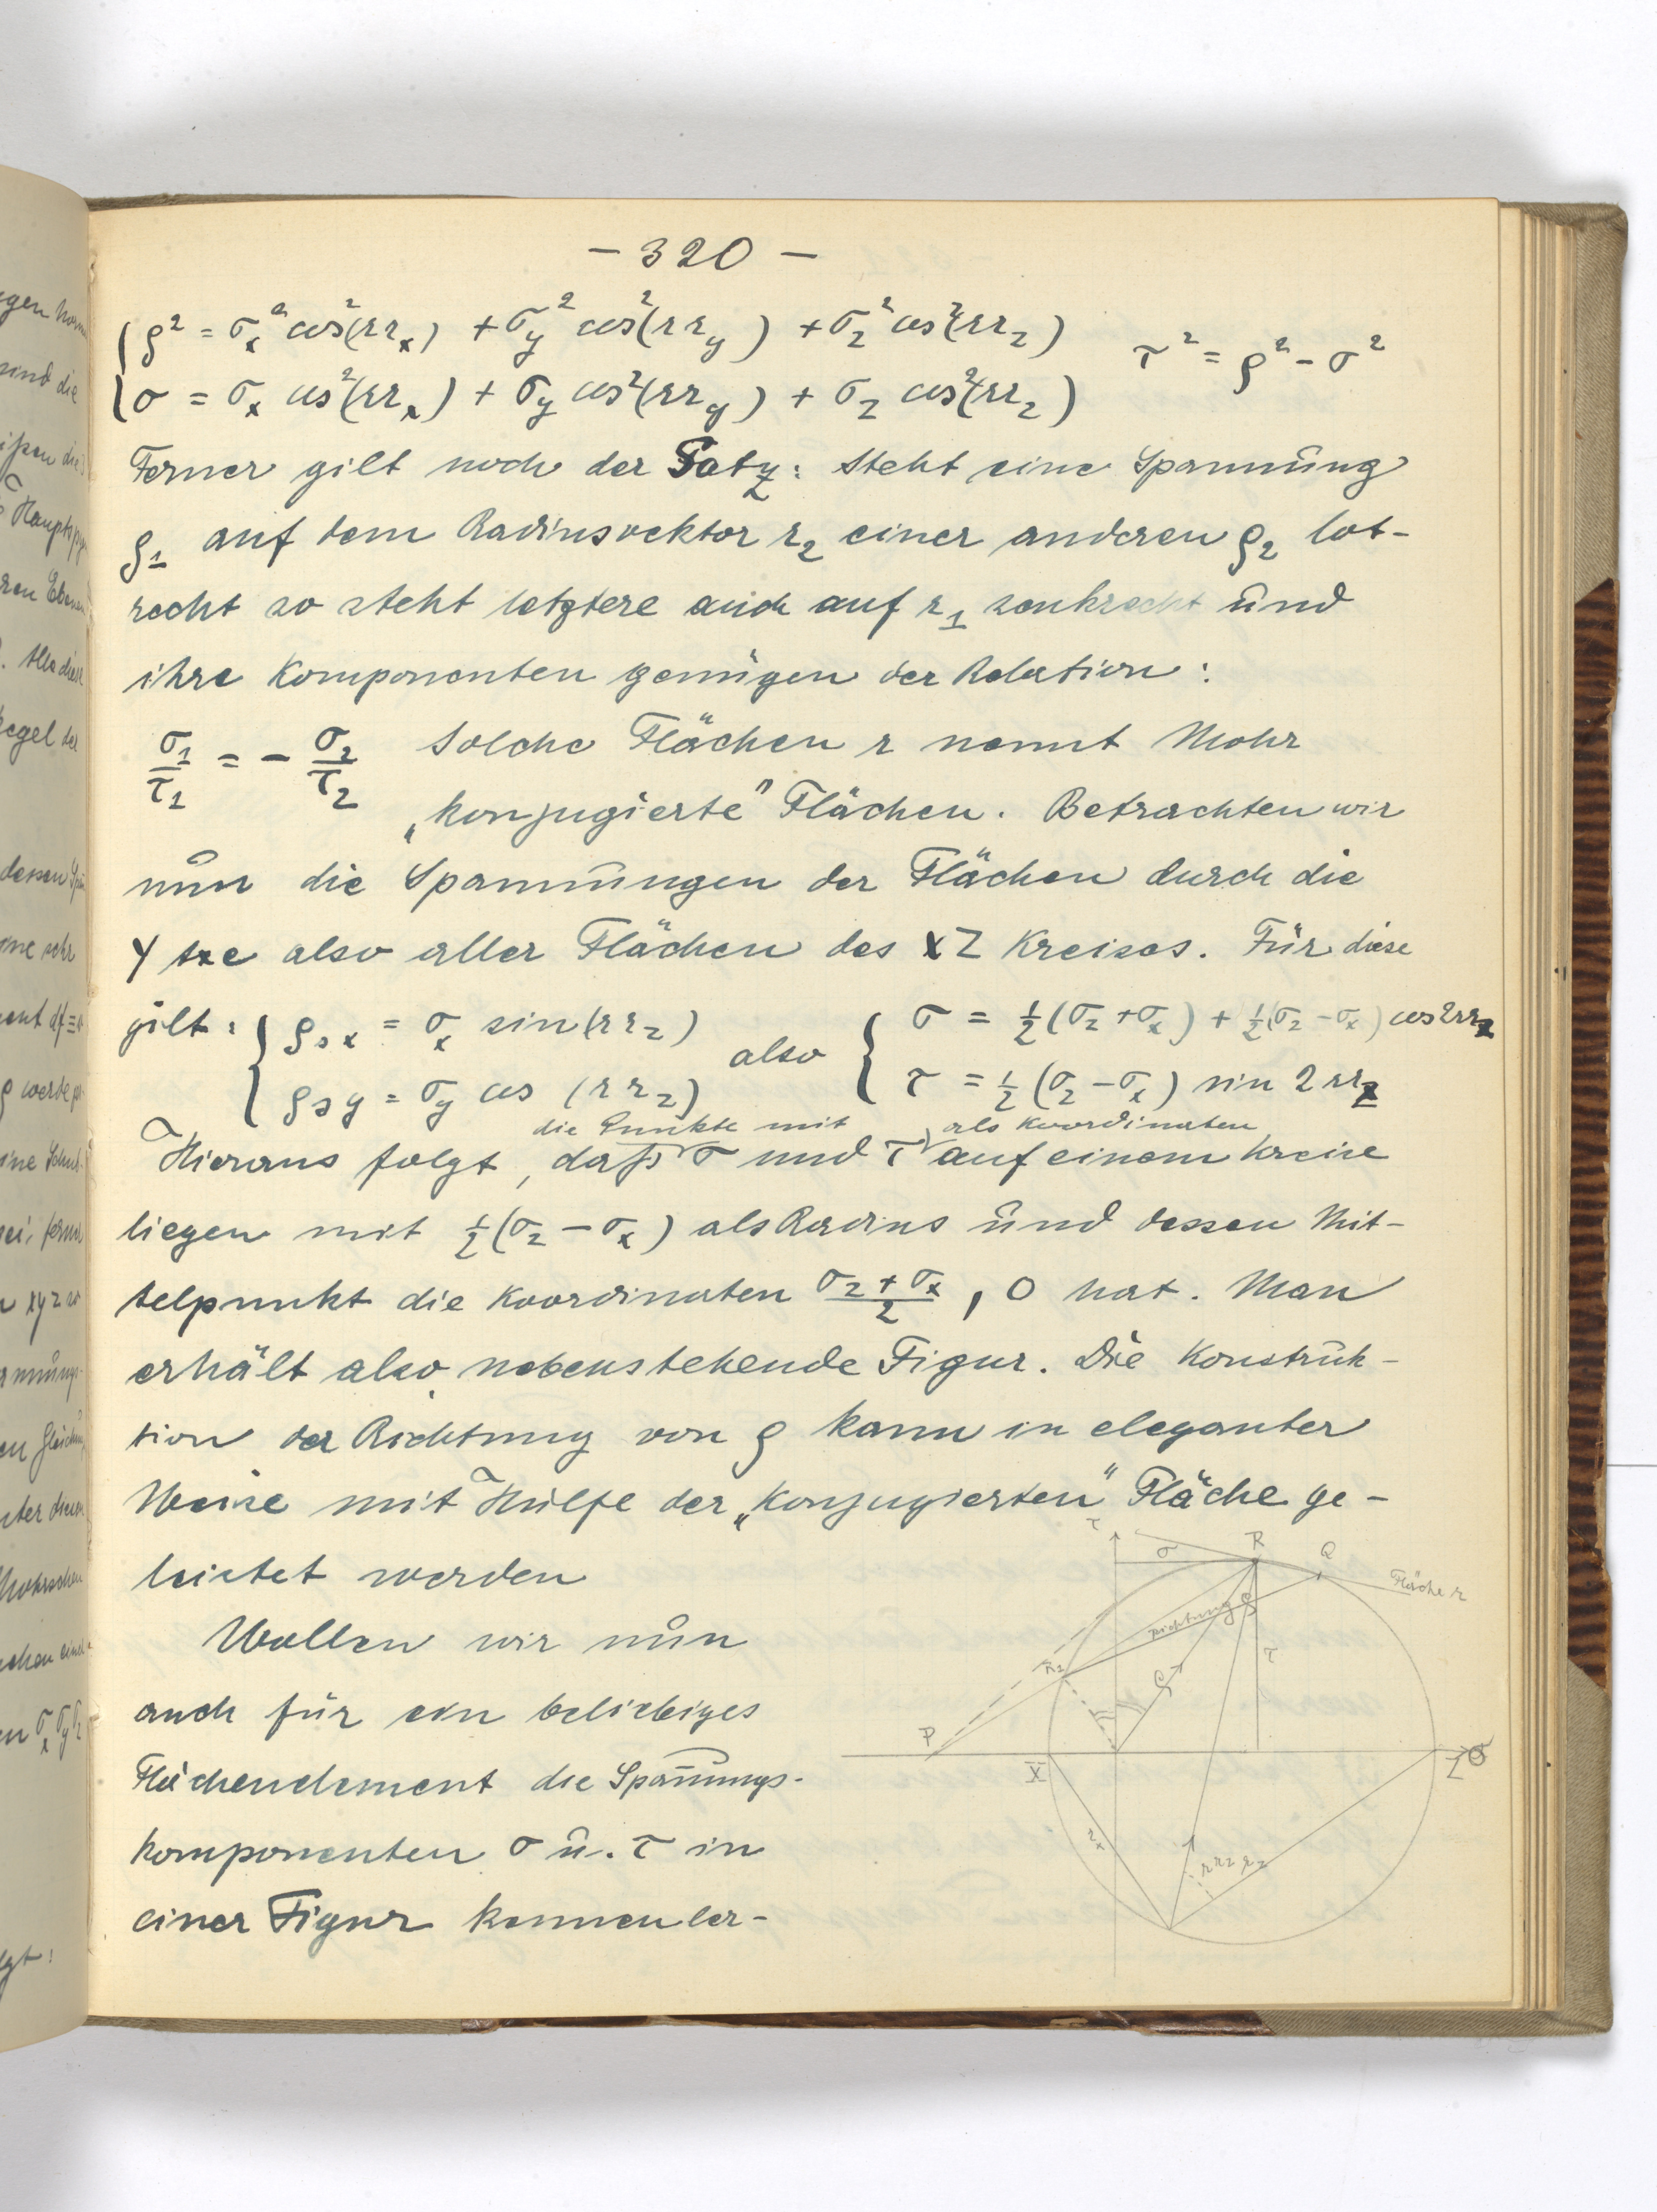 - 320 -
ρ² = σx² cos²(rrx) + σy² cos²(rry) + σz² cos²(rrz)
τ² = ρ² - σ²
σ = σx cos²(rrx) + σy cos²(rry) + σz cos²(rrz)
Ferner gilt noch der Satz: Steht eine Spannung
ρ1 auf dem Radiusvektor r2 einer anderen ρ2 lot-
recht so steht letztere auch auf r1 senkrecht und
ihre Komponenten genügen der Relation:
σ1/τ1 = - σ2/τ2 Solche Flächen r nennt Mohr
„konjugierte" Flächen. Betrachten wir
nun die Spannungen der Flächen durch die
Y axe also aller Flächen des XZ Kreises. Für diese
gilt: ρsx = σx sin(rrz) also σ = ½(σz + σx) + ½(σz - σx) cos2rrz
ρsy = σy cos (rrz) τ = ½(σz - σx) sin 2rrz
die Punkte mit als Koordinaten
Hieraus folgt, daß σ und τ auf einem Kreise
liegen mit ½(σz - σx) als Radius und dessen Mit-
telpunkt die Koordinaten σz + σx/2, 0 hat. Man
erhält also nebenstehende Figur. Die Konstruk-
tion der Richtung von ρ kann in eleganter
Weise mit Hülfe der „konjugierten" Fläche ge-
leistet werden
Wollen wir nun
auch für ein beliebiges
Flächenelement die Spannungs-
komponenten σ u. τ in
einer Figur kennen ler-
τ
σ
R
Q
Fläche r
Richtung ρ
ρ
τ
r2
P
X
Z
σ
rx
rrz
rz